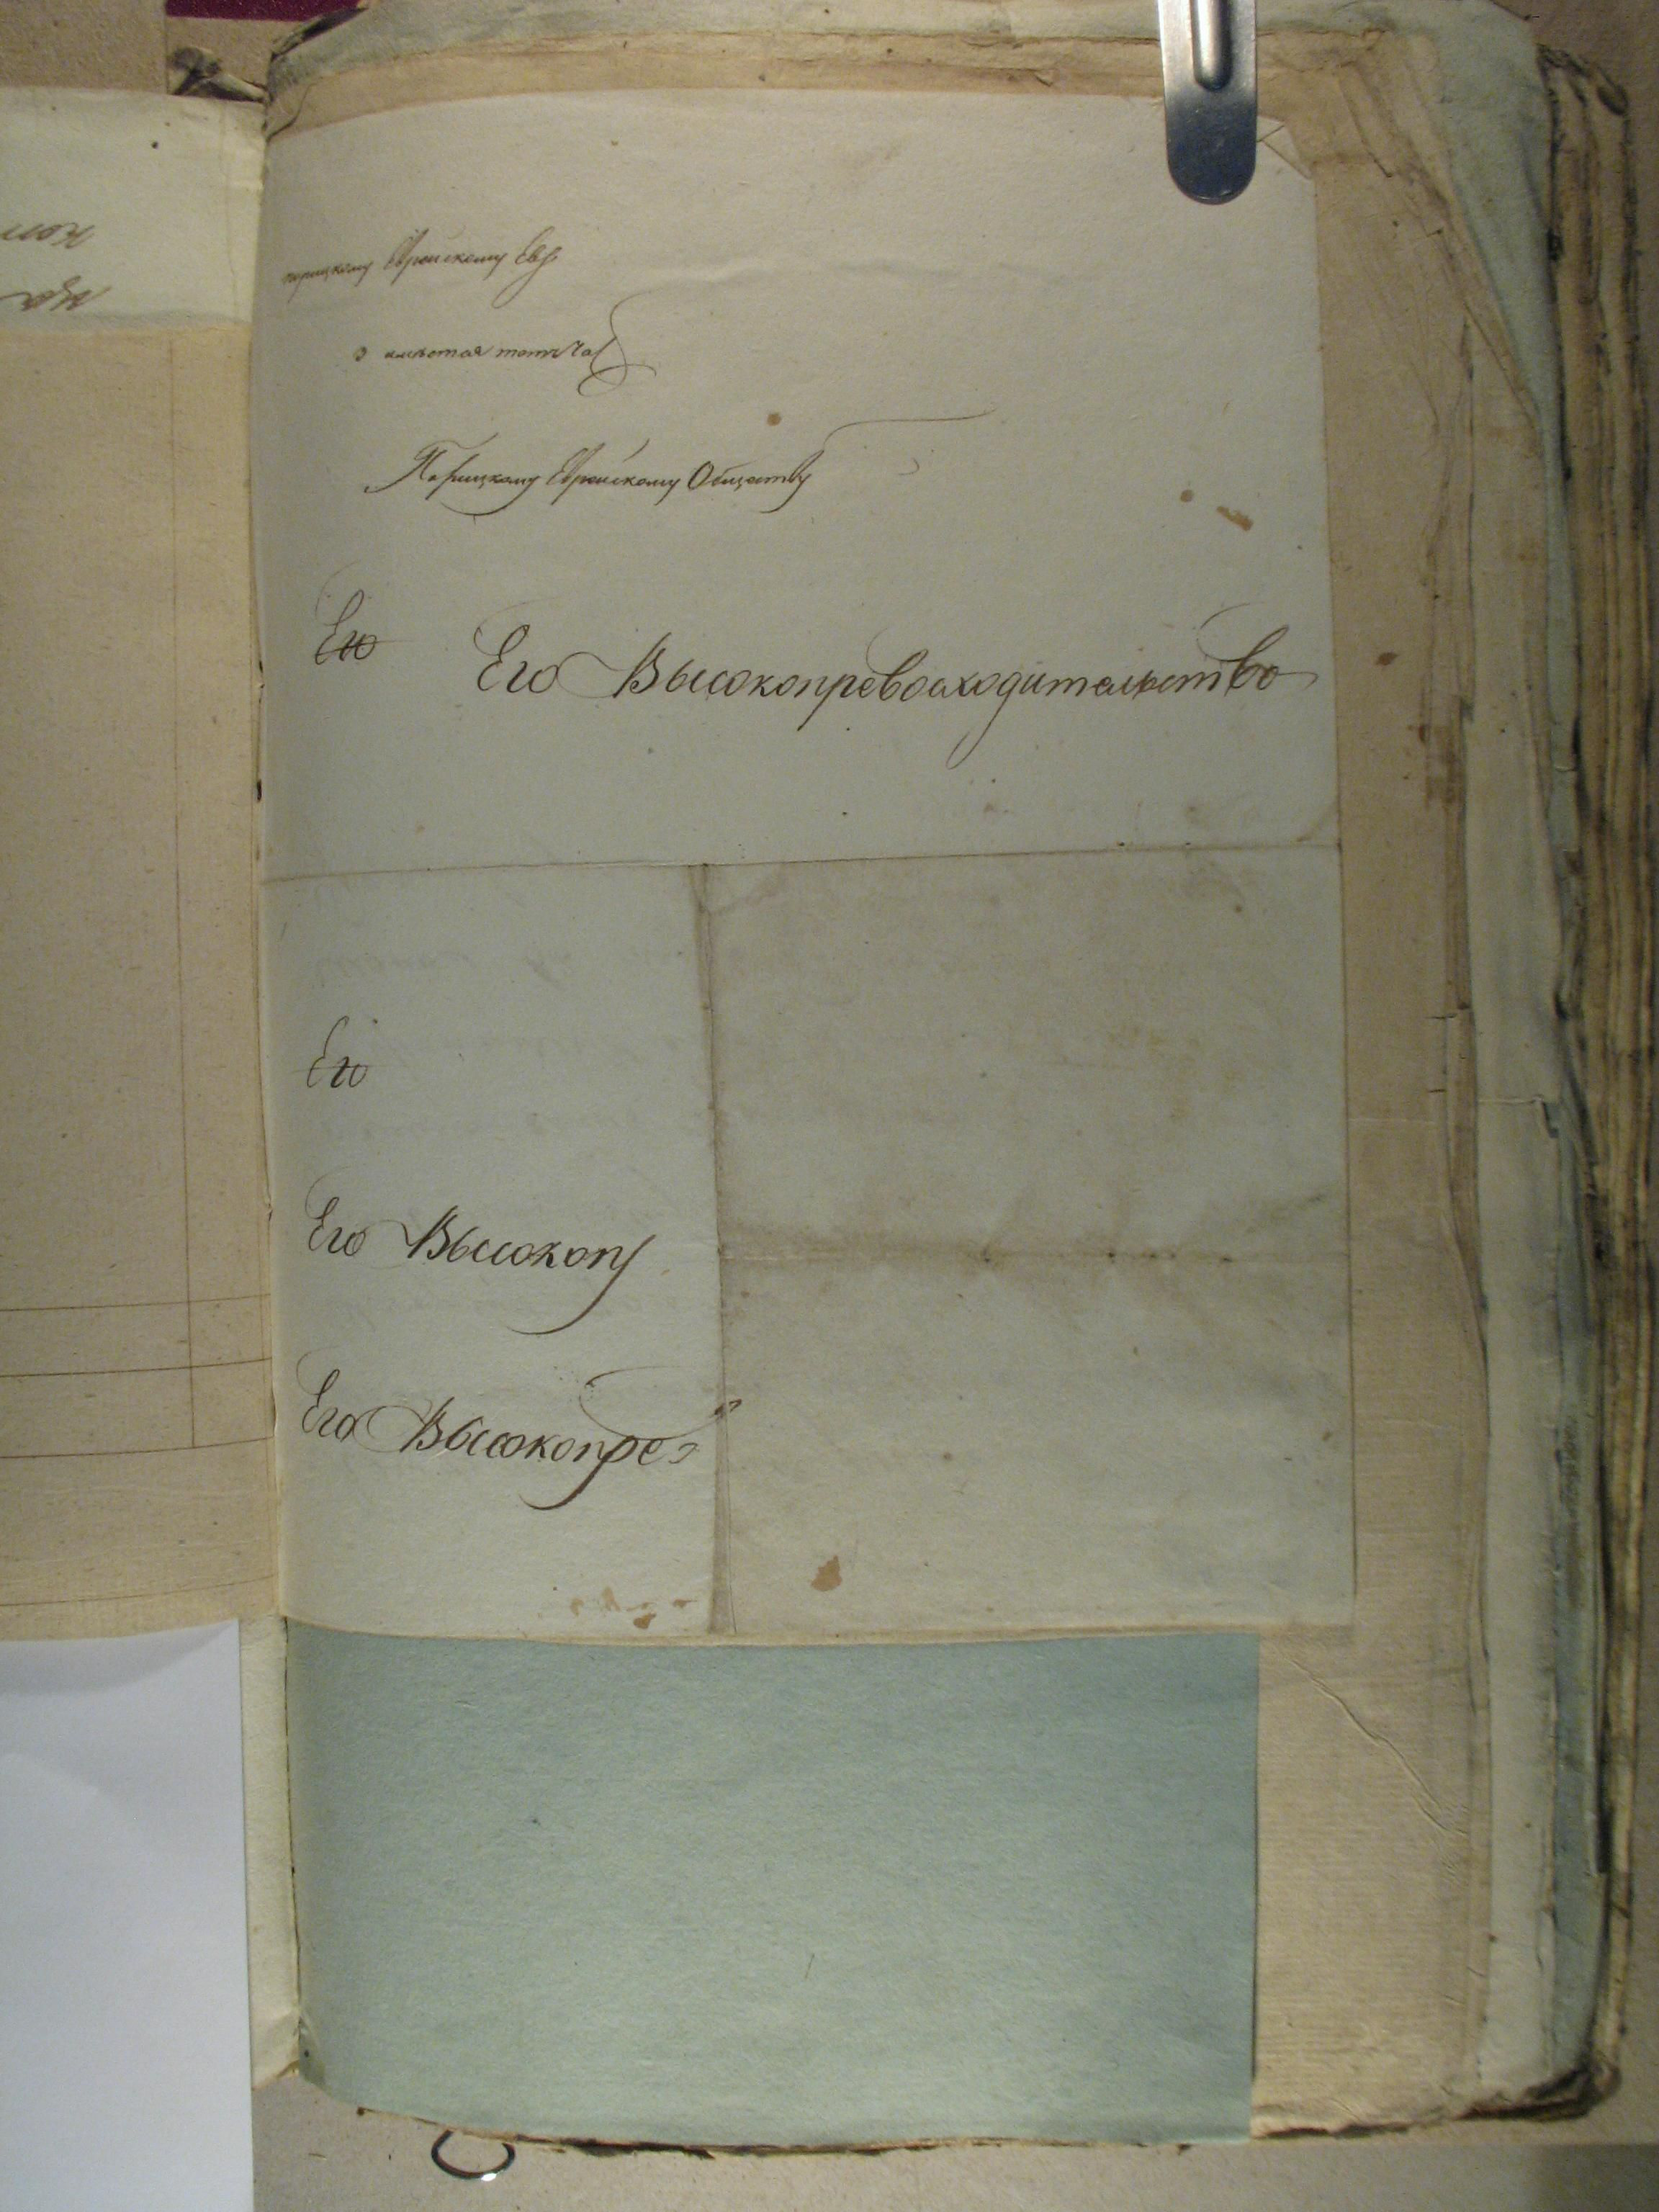 порицкому Еврейскому Евр
тотъ час
Порицкому Еврейскому Обществу
Его Его Высокопревосходительство
Его
Его Высокопр
Его Высокопре